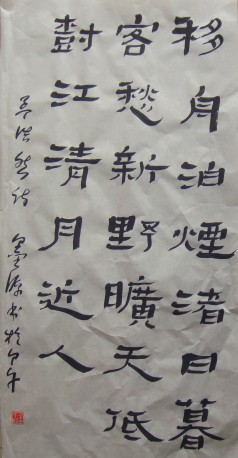 移舟泊煙渚日暮
客愁新野曠天低
樹江清月近人
孟浩然诗
书於